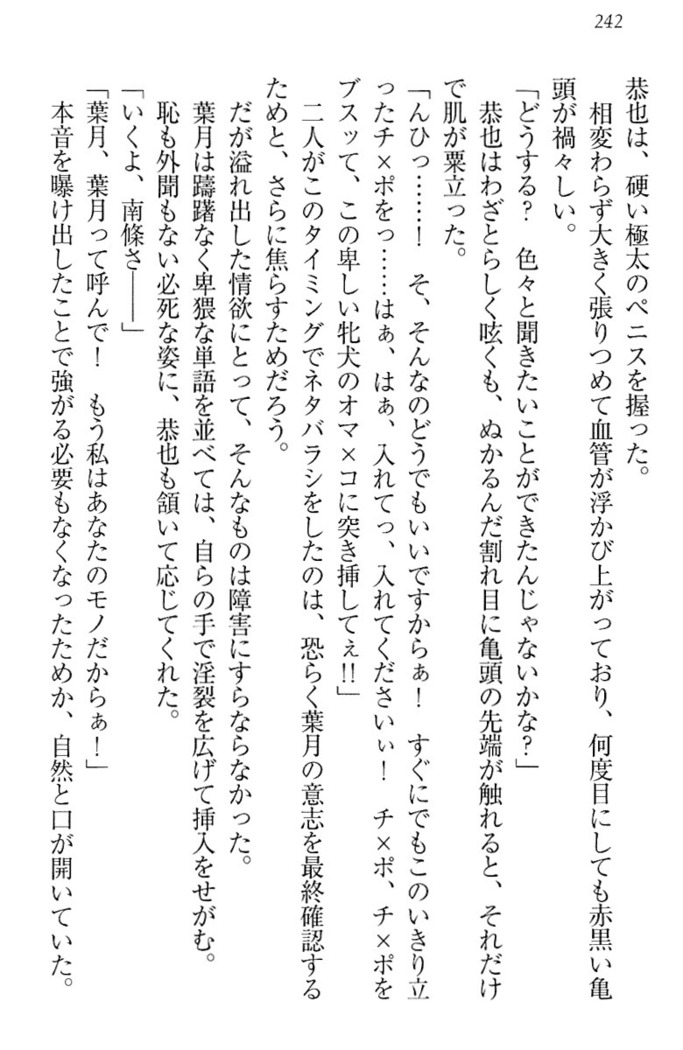 242
恭也は、硬い極太のペニスを握った。
相変わらず大きく張りつめて血管が浮かび上がっており、何度目にしても赤黒い亀
頭が禍々しい。
「どうする？　色々と聞きたいことができたんじゃないかな？」
恭也はわざとらしく呟くも、ぬかるんだ割れ目に亀頭の先端が触れると、それだけ
で肌が粟立った。
「んひっ……！　そ、そんなのどうでもいいですからぁ！　すぐにでもこのいきり立
ったチ×ポをっ……はぁ、はぁ、入れてっ、入れてくださいぃ！　チ×ポ、チ×ポを
ブスッて、この卑しい牝犬のオマ×コに突き挿してぇ!!」
二人がこのタイミングでネタバラシをしたのは、恐らく葉月の意志を最終確認する
ためと、さらに焦らすためだろう。
だが溢れ出した情欲にとって、そんなものは障害にすらならなかった。
葉月は躊躇なく卑猥な単語を並べては、自らの手で淫裂を広げて挿入をせがむ。
恥も外聞もない必死な姿に、恭也も頷いて応じてくれた。
「いくよ、南條さ――」
「葉月、葉月って呼んで！　もう私はあなたのモノだからぁ！」
本音を曝け出したことで強がる必要もなくなったためか、自然と口が開いていた。